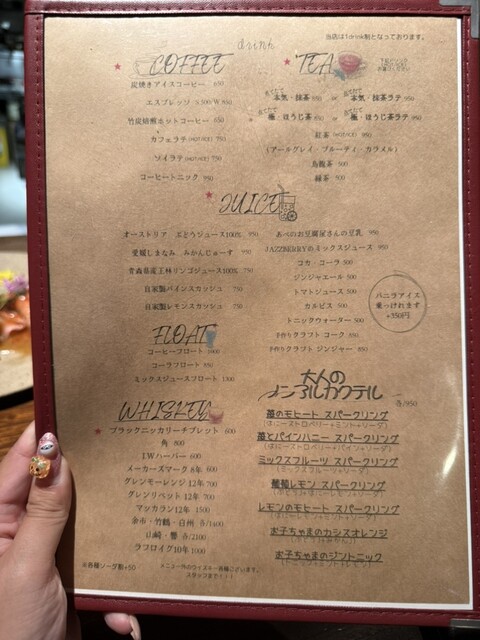 drink
当店は1drink制となっております。
COFFEE
炭焼きアイスコーヒー 650
エスプレッソ S.500/W.850
竹炭焙煎ホットコーヒー 650
カフェラテ(HOT/ICE) 750
ソイラテ(HOT/ICE) 750
コーヒートニック 950
TEA
本気・抹茶 850 or 本気・抹茶ラテ 950
極・ほうじ茶 850 or 極・ほうじ茶ラテ 950
紅茶 (HOT/ICE) 950
(アールグレイ・フルーティ・カラメル)
烏龍茶 500
緑茶 500
JUICE
オーストリア ぶどうジュース100% 950
愛媛しまなみ みかんじゅーす 950
青森県産王林リンゴジュース100% 750
自家製パインスカッシュ 750
自家製レモンスカッシュ 750
あべのお豆腐屋さんの豆乳 950
JAZZBERRYのミックスジュース 950
コカ・コーラ 500
ジンジャエール 500
トマトジュース 500
カルピス 500
トニックウォーター 500
手作りクラフト コーク 850
手作りクラフト ジンジャー 850
バニラアイス
乗っけれます
+350円
FLOAT
コーヒーフロート 1000
コーラフロート 850
ミックスジュースフロート 1300
WHISKEY
ブラックニッカリーチブレット 600
角 800
I.Wハーパー 600
メーカーズマーク 8年 600
グレンモーレンジ 12年 700
グレンリベット 12年 700
マッカラン12年 1500
余市・竹鶴・白州 各/1400
山崎・響 各/2100
ラフロイグ10年 1000
※各種ソーダ割+50
メニュー外のウイスキー各種ございます。
スタッフまで！！
大人の
ノンアルカクテル 各/950
苺のモヒート スパークリング
(はにーストロベリー+ミント+ソーダ)
苺とパインハニー スパークリング
(はにーストロベリー+パイン+ソーダ)
ミックスフルーツ スパークリング
(ミックスフルーツ+ソーダ)
葡萄レモン スパークリング
レモンのモヒート スパークリング
(はにーレモン+ミント+ソーダ)
お子ちゃまのカシスオレンジ
お子ちゃまのジントニック